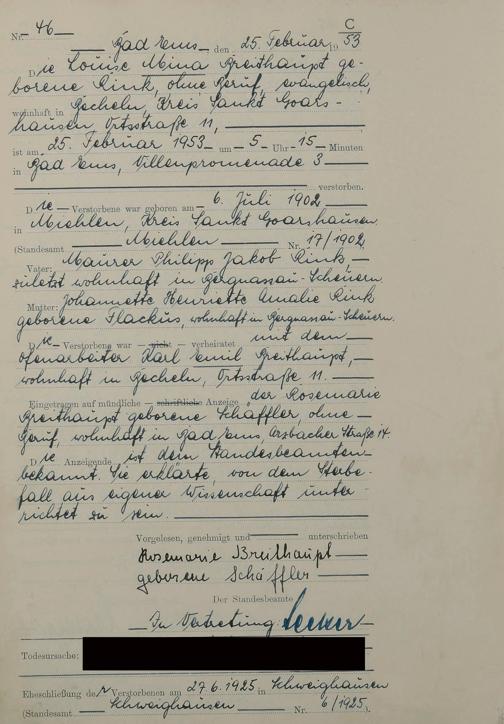 Nr. 46 C
Bad Ems, den 25. Februar 19 53
Die Louise Mina Breithaupt ge-
borene Rink, ohne Beruf, evangelisch,
wohnhaft in Becheln, Kreis Sankt Goars-
hausen, Ortsstraße 11,
ist am 25. Februar 1953 um 5 Uhr 15 Minuten
in Bad Ems, Villenpromenade 3
verstorben.
Die Verstorbene war geboren am 6. Juli 1902
in Miehlen, Kreis Sankt Goarshausen
(Standesamt Miehlen Nr. 17/1902
Vater: Maurer Philipp Jakob Rink
zuletzt wohnhaft in Bergnassau-Scheuern
Mutter: Johannette Henriette Amalie Rink
geborene Flackus, wohnhaft in Bergnassau-Scheuern.
Die Verstorbene war — nicht — verheiratet mit dem
Ofenarbeiter Karl Emil Breithaupt,
wohnhaft in Becheln, Ortsstraße 11.
Eingetragen auf mündliche — schriftliche Anzeige der Rosemarie
Breithaupt geborene Schäffler, ohne
Beruf, wohnhaft in Bad Ems, Arzbacher Straße 14.
Die Anzeigende ist dem Standesbeamten
bekannt. Sie erklärte, von dem Sterbe-
fall aus eigener Wissenschaft unter-
richtet zu sein.
Vorgelesen, genehmigt und unterschrieben
Rosemarie Breithaupt
geborene Schäffler
Der Standesbeamte
In Vertretung
Todesursache:
Eheschließung der Verstorbenen am 27.6.1925 in Schweighausen
(Standesamt Schweighausen Nr. 6/1925).